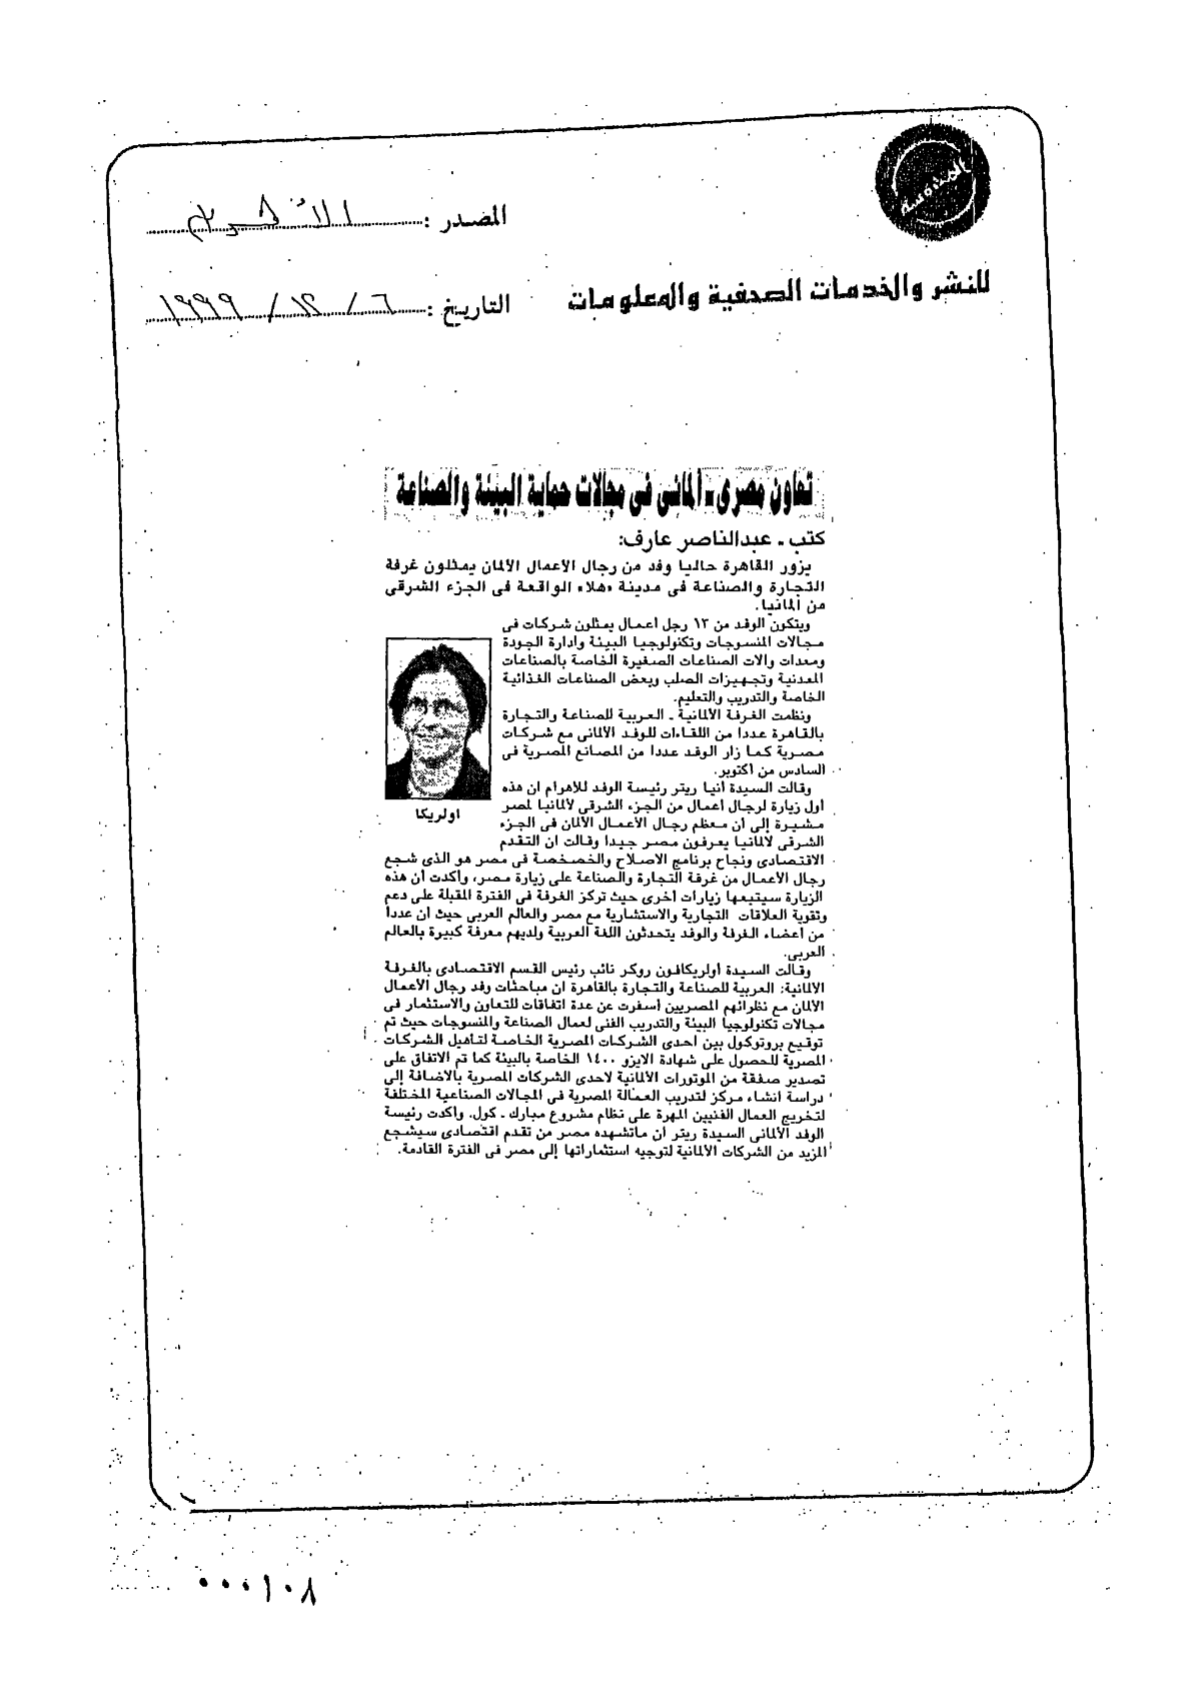 المصدر : الأهرام
للنشر والخدمات الصحفية والمعلومات
التاريخ : ٦ / ١٢ / ١٩٩٩
تعاون مصرى - ألمانى فى مجالات حماية البيئة والصناعة
كتب - عبدالناصر عارف:
يزور القاهرة حاليا وفد من رجال الأعمال الألمان يمثلون غرفة
التجارة والصناعة فى مدينة «هلا» الواقعة فى الجزء الشرقى
من ألمانيا.
ويتكون الوفد من ١٣ رجل أعمال يمثلون شركات فى
مجالات المنسوجات وتكنولوجيا البيئة وادارة الجودة
ومعدات والات الصناعات الصغيرة الخاصة بالصناعات
المعدنية وتجهيزات الصلب وبعض الصناعات الغذائية
الخاصة والتدريب والتعليم.
ونظمت الغرفة الألمانية - العربية للصناعة والتجارة
بالقاهرة عددا من اللقاءات للوفد الألمانى مع شركات
مصرية كما زار الوفد عددا من المصانع المصرية فى
السادس من أكتوبر.
وقالت السيدة أنيا ريتر رئيسة الوفد للأهرام ان هذه
أول زيارة لرجال أعمال من الجزء الشرقى لألمانيا لمصر
مشيرة إلى أن معظم رجال الأعمال الألمان فى الجزء
الشرقى لألمانيا يعرفون مصر جيدا وقالت ان التقدم
الاقتصادى ونجاح برنامج الاصلاح والخصخصة فى مصر هو الذى شجع
رجال الأعمال من غرفة التجارة والصناعة على زيارة مصر، وأكدت أن هذه
الزيارة سيتبعها زيارات أخرى حيث تركز الغرفة فى الفترة المقبلة على دعم
وتقوية العلاقات التجارية والاستشارية مع مصر والعالم العربى حيث أن عددا
من أعضاء الغرفة والوفد يتحدثون اللغة العربية ولديهم معرفة كبيرة بالعالم
العربى.
اولريكا
وقالت السيدة أولريكافون روكر نائب رئيس القسم الاقتصادى بالغرفة
الألمانية: العربية للصناعة والتجارة بالقاهرة ان مباحثات وفد رجال الأعمال
الألمان مع نظرائهم المصريين أسفرت عن عدة اتفاقات للتعاون والاستثمار فى
مجالات تكنولوجيا البيئة والتدريب الفنى لعمال الصناعة والمنسوجات حيث تم
توقيع بروتوكول بين احدى الشركات المصرية الخاصة لتأهيل الشركات
المصرية للحصول على شهادة الايزو ١٤٠٠ الخاصة بالبيئة كما تم الاتفاق على
تصدير صفقة من الموتورات الألمانية لاحدى الشركات المصرية بالاضافة إلى
دراسة انشاء مركز لتدريب العمالة المصرية فى المجالات الصناعية المختلفة
لتخريج العمال الفنيين المهرة على نظام مشروع مبارك - كول. وأكدت رئيسة
الوفد الألمانى السيدة ريتر أن ماتشهده مصر من تقدم اقتصادى سيشجع
المزيد من الشركات الألمانية لتوجيه استثماراتها إلى مصر فى الفترة القادمة.
٠٠٠١٠٨